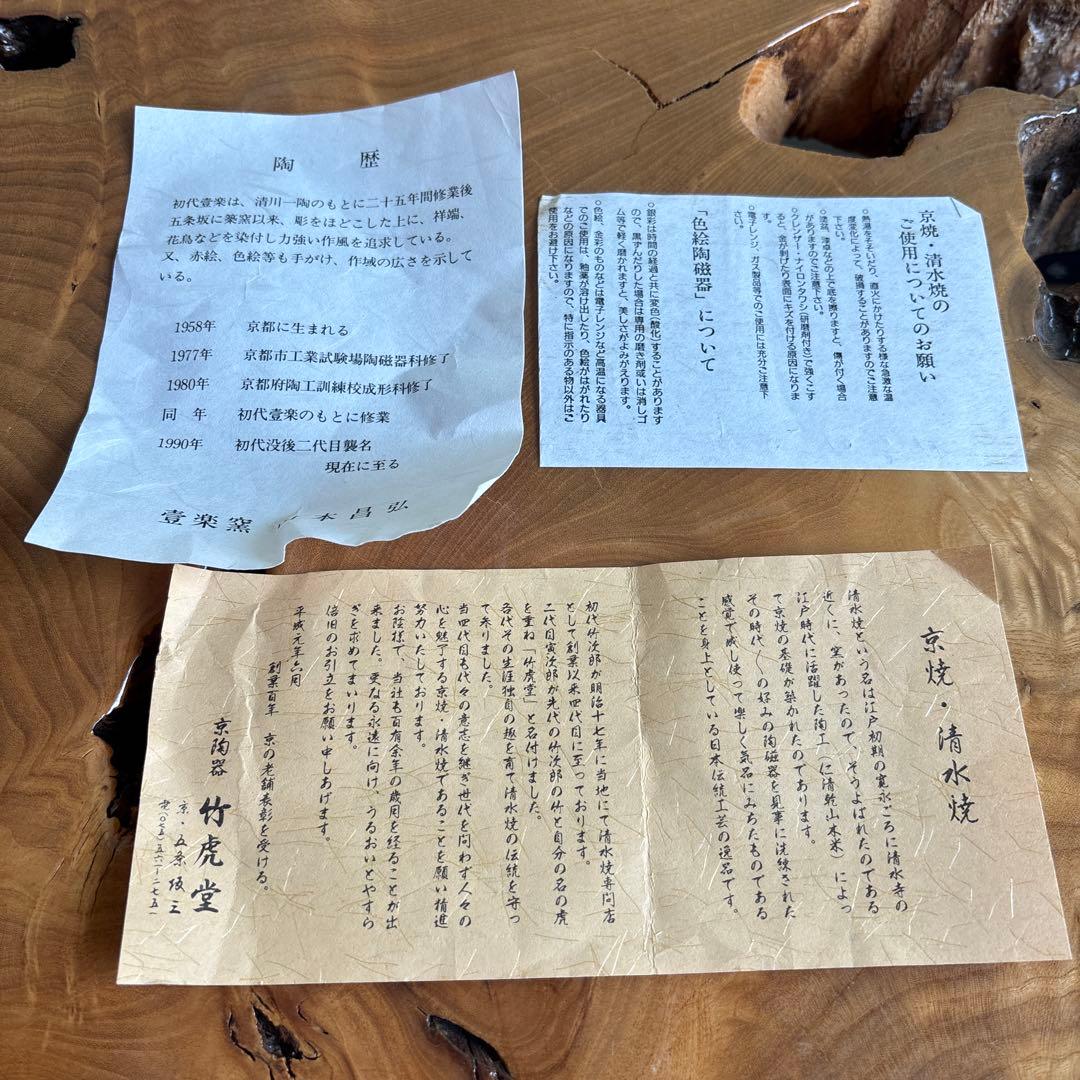 陶 歴
初代壹楽は、清川一陶のもとに二十五年間修業後
五条坂に築窯以来、彫をほどこした上に、祥端、
花鳥などを染付し力強い作風を追求している。
又、赤絵、色絵等も手がけ、作域の広さを示して
いる。
1958年 京都に生まれる
1977年 京都市工業試験場陶磁器科修了
1980年 京都府陶工訓練校成形科修了
同 年 初代壹楽のもとに修業
1990年 初代没後二代目襲名
現在に至る
壹楽窯 本昌弘
京焼・清水焼の
ご使用についてのお願い
○熱湯をそそいだり、直火にかけたりする様な急激な温
度変化によって、破損することがありますのでご注意
下さい。
○塗盆、漆卓などの上で底を擦りますと、傷が付く場合
がありますのでご注意下さい。
○クレンザー・ナイロンタワシ(研磨剤付き)で強くこす
ると、金が剥げたり表面にキズを付ける原因になりま
す。
○電子レンジ、ガス製品等でのご使用には充分ご注意下
さい。
「色絵陶磁器」について
○銀彩は時間の経過と共に変色(酸化)することがあります
ので、黒ずんだりした場合は専用の磨き剤或いは消しゴ
ム等で軽く磨かれますと、美しさがよみがえります。
○色絵、金彩のものなどは電子レンジなど高温になる器具
でのご使用は、釉薬が溶け出したり、色絵がはがれたり
などの原因になりますので、特に指示のある物以外はご
使用をお避け下さい。
京焼・清水焼
清水焼という名は江戸初期の寛永ごろに清水寺の
近くに、窯があったので、そうよばれたのである
江戸時代に活躍した陶工(仁清乾山木米)によっ
て京焼の基礎が築かれたのであります。
その時代〱の好みの陶磁器を見事に洗練された
感覚で熾し使って楽しく気品にみちたものである
ことを身上としている日本伝統工芸の逸品です。
初代竹次郎が明治十七年に当地にて清水焼専門店
として創業以来四代目に至っております。
二代目寅次郎が先代の竹次郎の竹と自分の名の虎
を重ね「竹虎堂」と名付けました。
各代その生涯独自の趣を育て清水焼の伝統を守っ
て参りました。
当四代目も代々の意志を継ぎ世代を問わず人々の
心を魅了する京焼・清水焼であることを願い精進
努力いたしております。
お陰様で、当社も百有余年の歳月を経ることが出
来ました。更なる永遠に向け、うるおいとやすら
ぎを求めてまいります。
倍旧のお引立をお願い申しあげます。
平成元年六月 創業百年 京の老舗表彰を受ける。
京陶器 竹虎堂
京・五条坂三
☎(〇七五)五六一ー二七五一